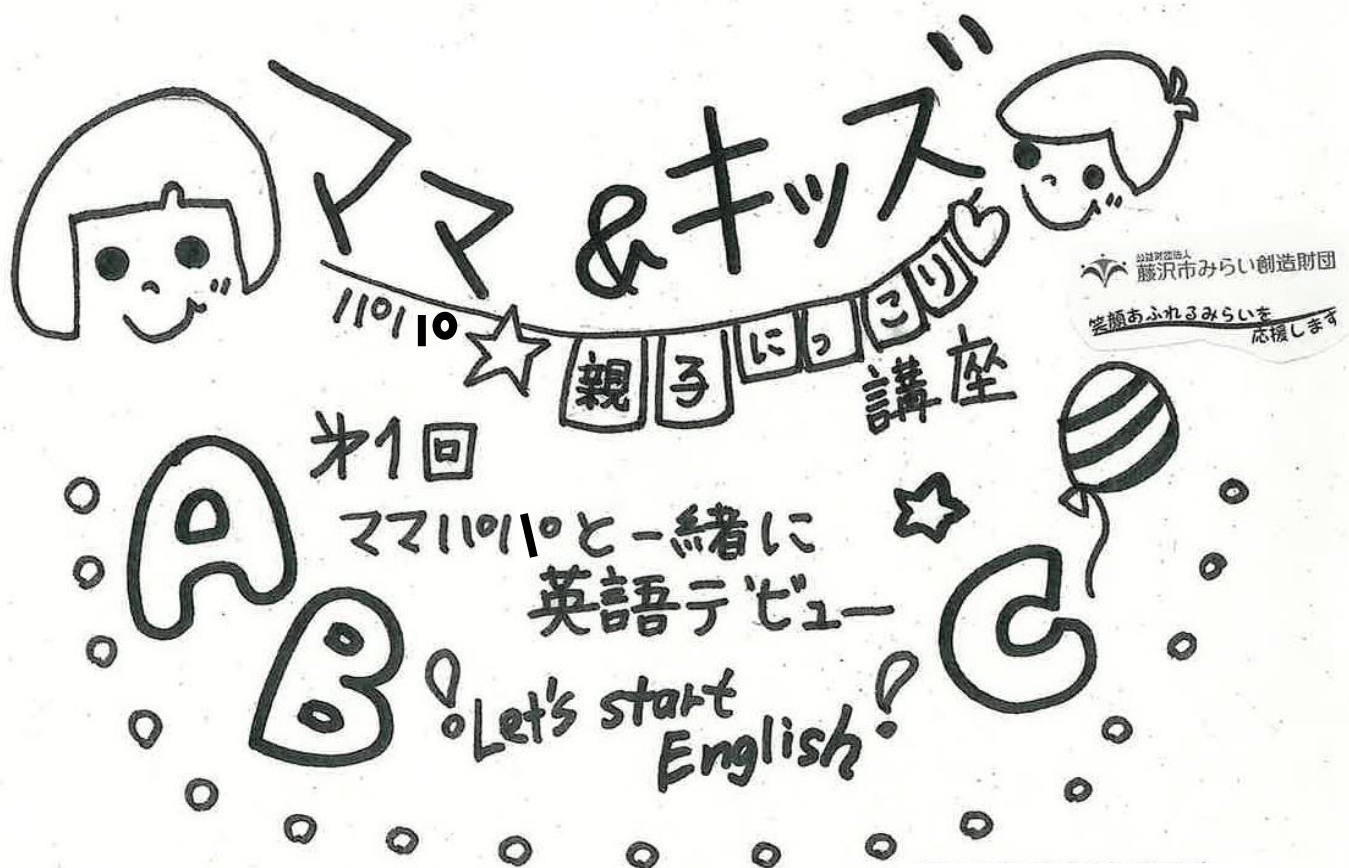 ママ&キッズ
パパ
親子にっこり♡
講座
公益財団法人
藤沢市みらい創造財団
笑顔あふれるみらいを
応援します
㐧1回
ママパパと一緒に
英語デビュー
A B C
!Let's start
English!